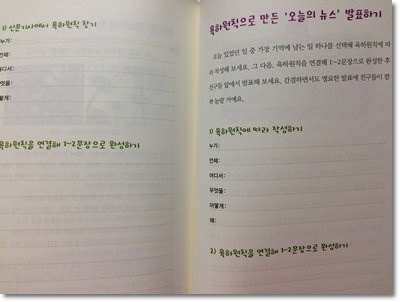 1) 신문기사에서 육하원칙 찾기
누가:
언제:
어디서:
무엇을:
어떻게:
육하원칙을 연결해 1~2문장으로 완성하기
육하원칙으로 만든 '오늘의 뉴스' 발표하기
오늘 있었던 일 중 가장 기억에 남는 일 하나를 선택해 육하원칙에 따
라 작성해 보세요. 그 다음, 육하원칙을 연결해 1~2문장으로 완성한 후
친구들 앞에서 발표해 보세요. 간결하면서도 명료한 발표에 친구들이 깜
짝 놀랄 거예요.
1) 육하원칙에 따라 작성하기
누가:
언제:
어디서:
무엇을:
어떻게:
왜:
2) 육하원칙을 연결해 1~2문장으로 완성하기